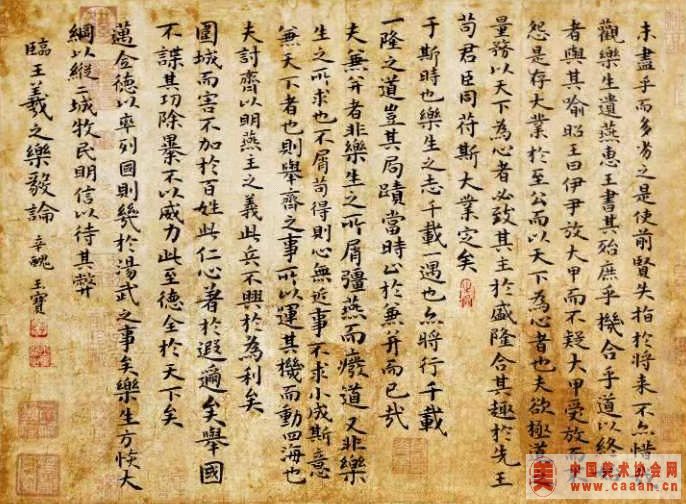 未盡乎而多劣之是使前賢失指於將来不亦惜
觀樂生遺燕惠王書其殆庶乎機合乎道以終始
者與其喻昭王曰伊尹放大甲而不疑大甲受放而不
怨是存大業於至公而以天下為心者也夫欲極道之
量務以天下為心者必致其主於盛隆合其趣於先王
苟君臣同苻斯大業定矣
于斯時也樂生之志千載一遇也亦將行千載
一隆之道豈其局蹟當時止於蒹并而已哉
夫蒹并者非樂生之所屑彊燕而癈道又非樂
生之所求也不屑苟得則心無近事不求小成斯意
蒹天下者也則舉齊之事所以運其機而動四海也
夫討齊以明燕主之義此兵不興於為利矣
圍城而害不加於百姓此仁心著於遐邇矣舉國
不謀其功除暴不以威力此至德全於天下矣
邁全德以率列國則幾於湯武之事矣樂生方恢大
綱以縱二城牧民明信以待其弊
臨王羲之樂毅論 辛醜 玉寶
中国美术协会网
www.caaan.cn